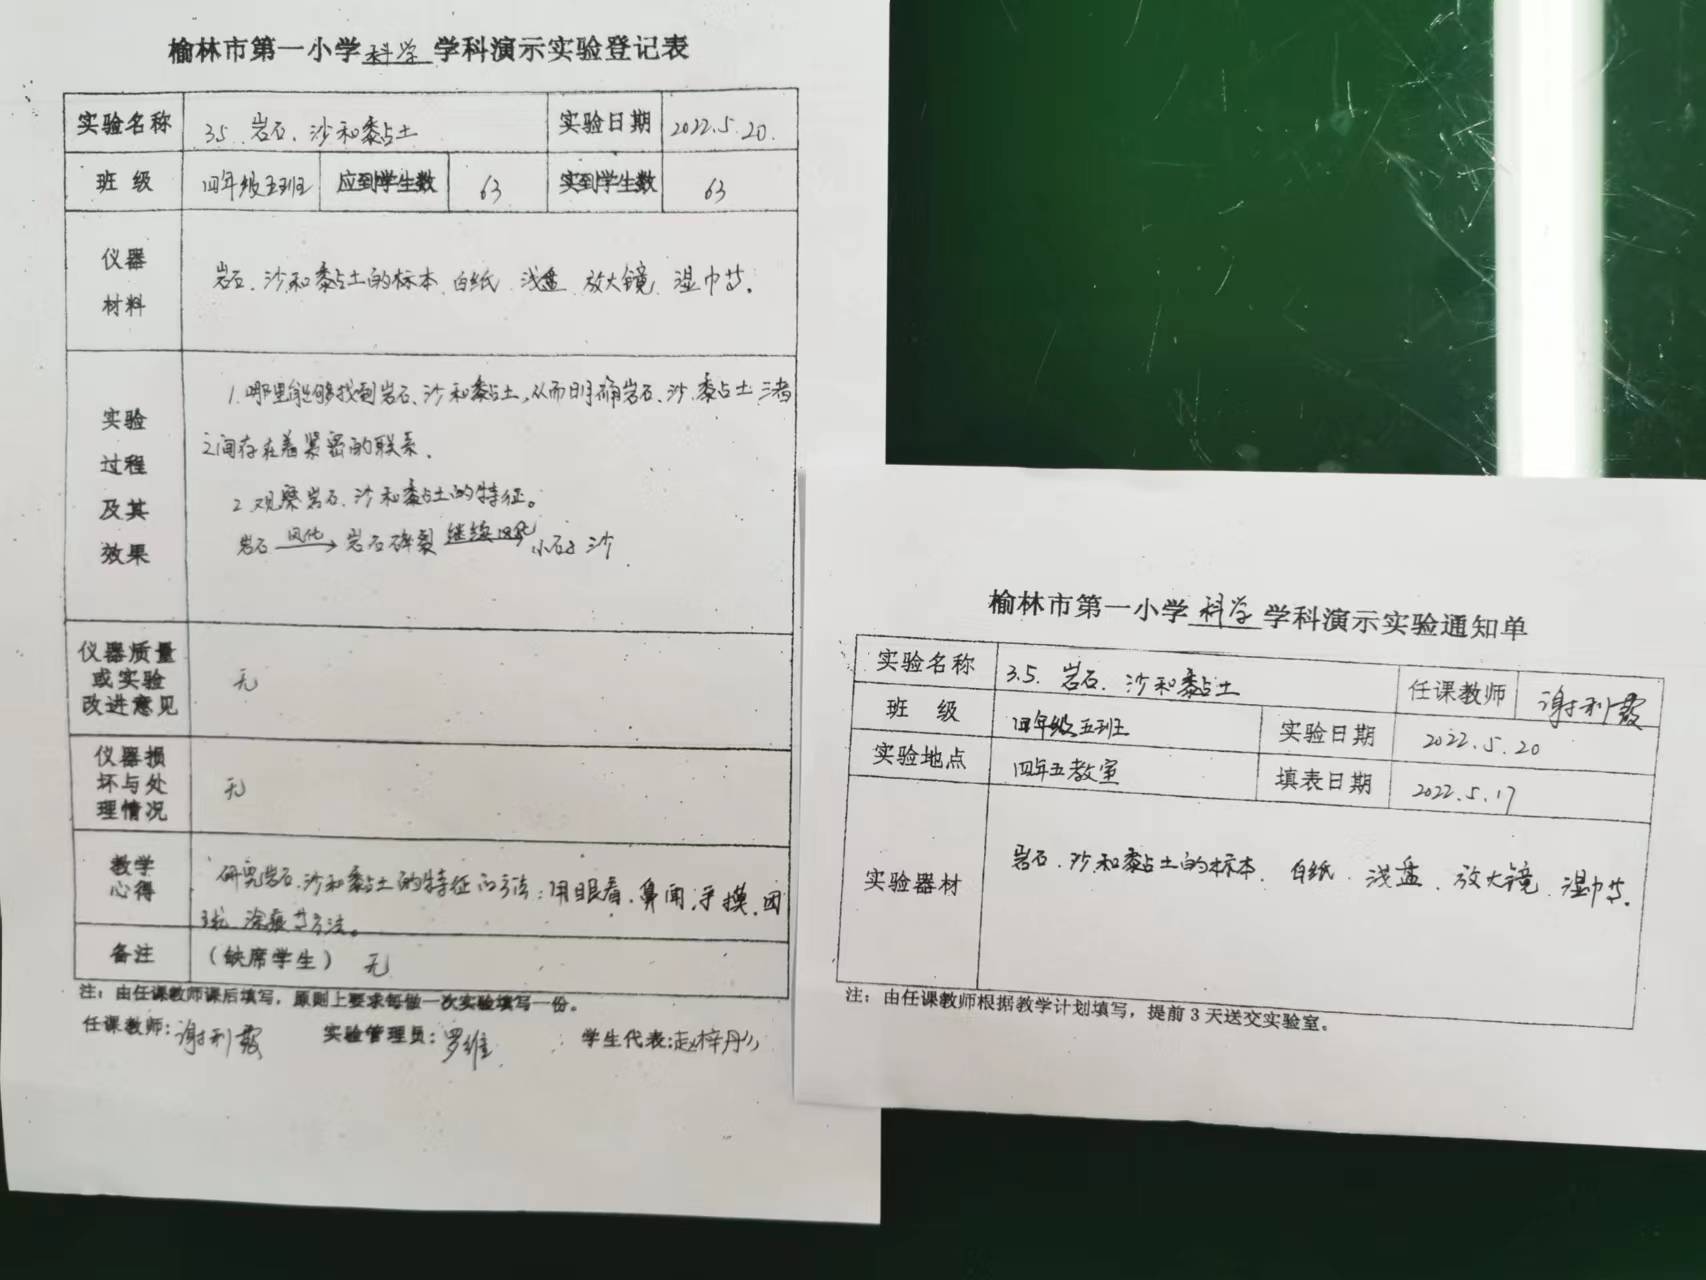 榆林市第一小学科学学科演示实验登记表
实验名称 3.5 岩石、沙和黏土 实验日期 2022.5.20.
班 级 四年级五班 应到学生数 63 实到学生数 63
仪器
材料
岩石、沙和黏土的标本、白纸、浅盘、放大镜、湿巾等。
实验
过程
及其
效果
1.哪里能够找到岩石、沙和黏土,从而明确岩石、沙、黏土三者
之间存在着紧密的联系.
2.观察岩石、沙和黏土的特征。
岩石 风化→ 岩石碎裂 继续风化→ 小石子 沙
仪器质量
或实验
改进意见
无
仪器损
坏与处
理情况
无
教学
心得
研究岩石、沙和黏土的特征的方法:用眼看、鼻闻、手摸、团
球、涂痕等方法。
备注 (缺席学生) 无
注:由任课教师课后填写,原则上要求每做一次实验填写一份。
任课教师:谢利霞 实验管理员:罗维 学生代表:赵梓彤
榆林市第一小学科学学科演示实验通知单
实验名称 3.5. 岩石、沙和黏土 任课教师 谢利霞
班 级 四年级五班 实验日期 2022.5.20
实验地点 四年五教室 填表日期 2022.5.17
实验器材 岩石、沙和黏土的标本、白纸、浅盘、放大镜、湿巾等。
注:由任课教师根据教学计划填写,提前3天送交实验室。